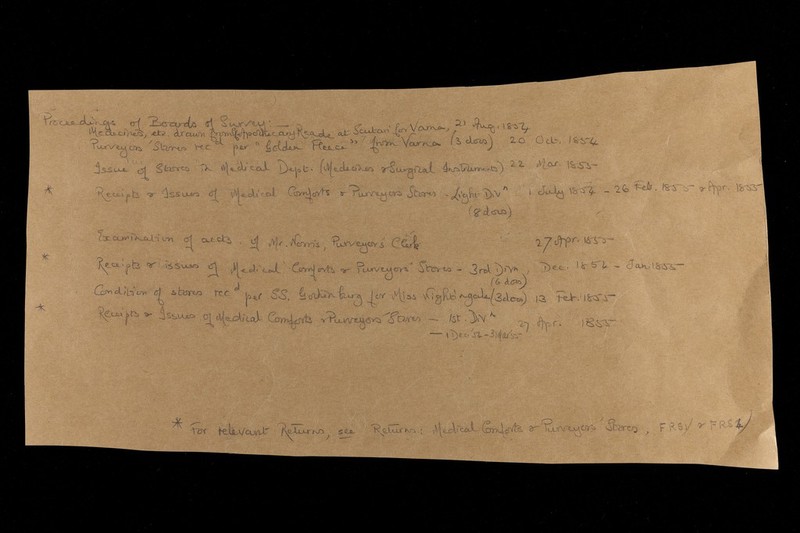 Proceedings of Boards of Survey:—
Medicines, etc. drawn from Apothecary Reade at Scutari for Varna, 21 Aug. 1854
Purveyors' Stores recd per "Golden Fleece" from Varna (3 docs) 20 Oct. 1854
Issue of Stores in Medical Dept. (Medicines & Surgical Instruments) 22 Mar. 1855
* Receipts & Issues of Medical Comforts & Purveyors Stores - Light Divn 1 July 1854 - 26 Feb. 1855 & Apr. 1855
(8 docs)
Examination of accts. of Mr. Norris, Purveyors' Clerk 27 Apr. 1855
* Receipts & issues of Medical Comforts & Purveyors' Stores - 3rd Divn, Dec. 1854 - Jan 1855
(6 docs)
Condition of stores recd per SS. Gothenburg for Miss Nightingale (3 docs) 13 Feb. 1855
* Receipts & Issues of Medical Comforts & Purveyors' Stores — 1st Divn 27 Apr. 1855
— 1 Dec '54 -
* For relevant Returns, see Returns: Medical Comforts & Purveyors' Stores,